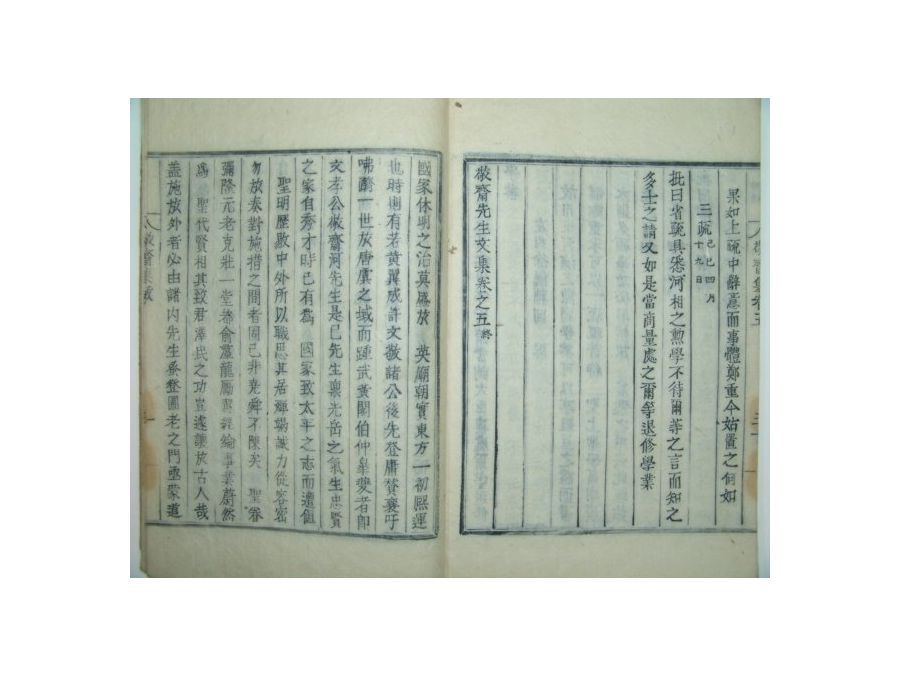 果如上疏中辭意而事體鄭重今姑置之何如
三疏 己巳四月十九日
批曰省疏具悉河相之勲學不待爾等之言而知之
多士之請又如是當商量處之爾等退修學業
敬齋先生文集卷之五 終
國家休明之治莫盛於 英廟朝實東方一初熙運
也時則有若黃翼成許文敬諸公後先登庸贊襄吁
咈酬一世於唐虞之域而踵武黃閣伯仲皐夔者即
文孝公敬齋河先生是已先生禀光岳之氣生忠賢
之家自秀才時已有爲 國家致太平之志而遭値
聖明歷敭中外所以職思其居 識力從容密
勿於奏對施措之間者固已非堯舜不陳矣 聖眷
彌隆元老克壯一堂 龍 經綸事業蔚然
爲 聖代賢相其致君澤民之功豈遽讓於古人哉
盖施於外者必由諸內先生 圃老之門 蒙道
敬齋集跋
敬齋集卷五